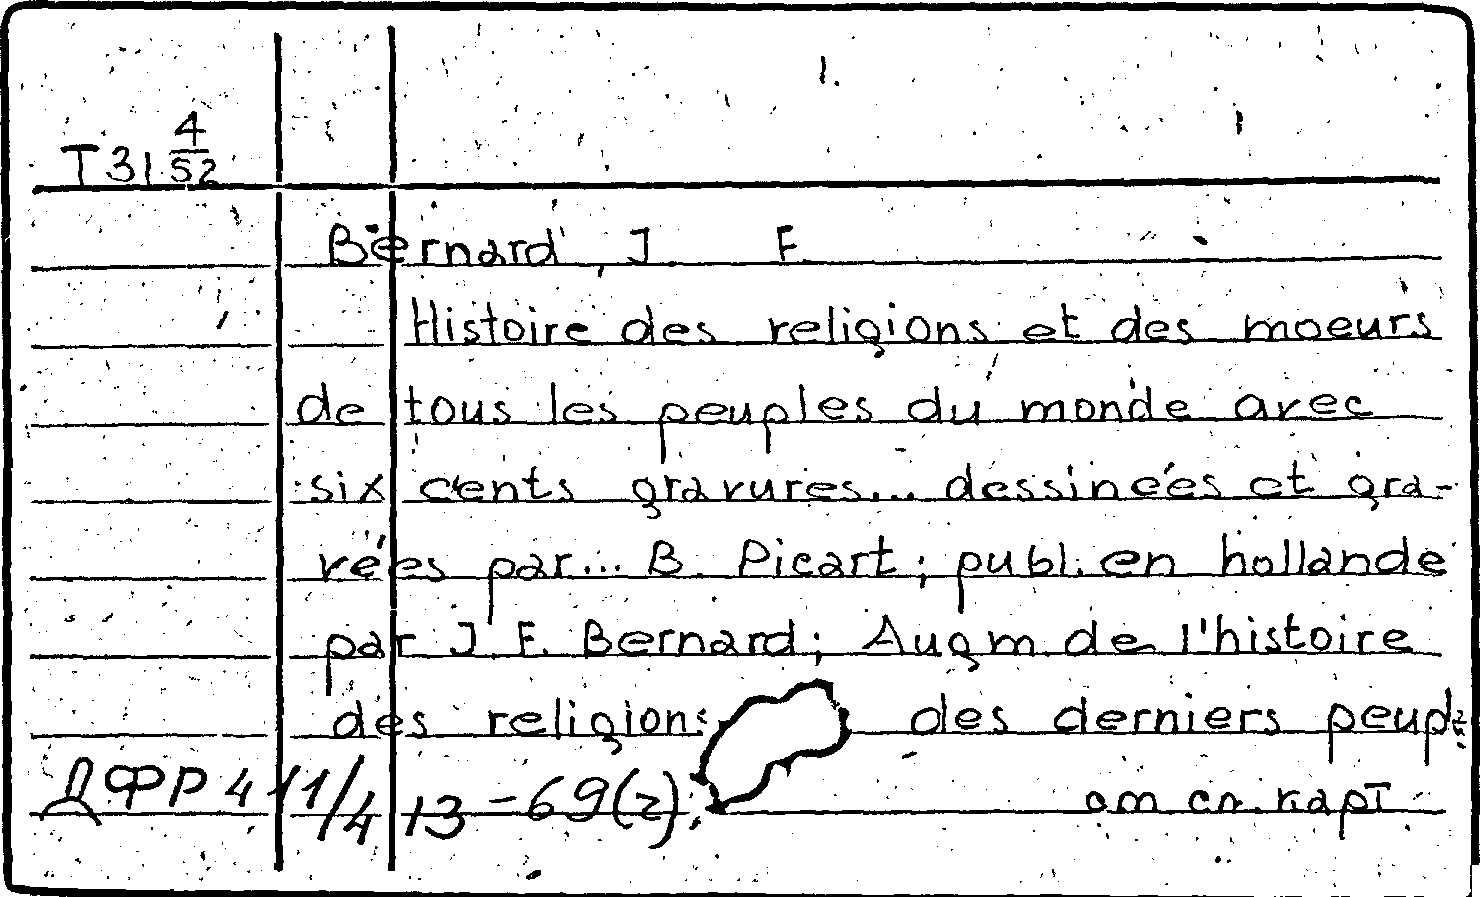 T31 4/52
Bernard, J. F.
Histoire des religions et des moeurs
de tous les peuples du monde avec
six cents gravures... dessinées et gra-
vées par... B. Picart; publ. en hollande
par J. F. Bernard; Augm de l'histoire
des religions des derniers peupl
ДФР 4 11/4 13-69(2);